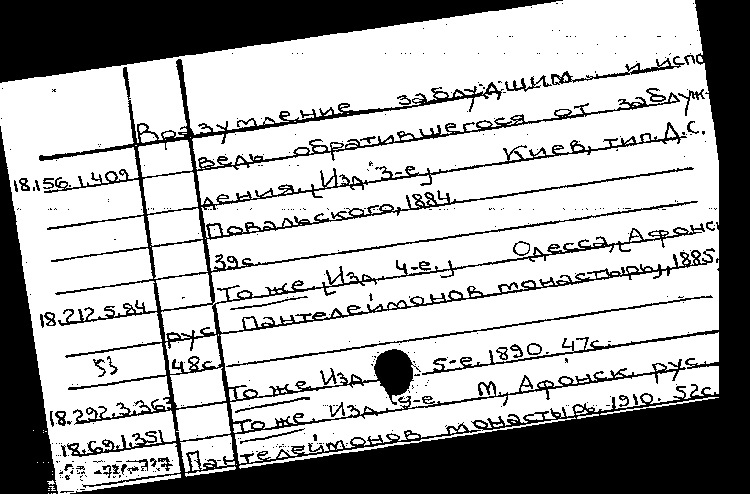 Вразумление заблудшим и испо
ведь обратившегося от заблуж-
18.156.1.409
дения. [Изд. 3-е]. Киев, тип. Д.С.
Повальского, 1884.
39с.
То же. [Изд. 4-е.] Одесса, [Афонск
18.212.5.84
рус Пантелеймонов монастырь], 1885.
53 48с.
То же. Изд 5-е. 1890. 47с.
18.292.3.363
То же. Изд. 9-е. М., Афонск. рус.
18.69.1.351
Пантелеймонов монастырь, 1910. 52с.